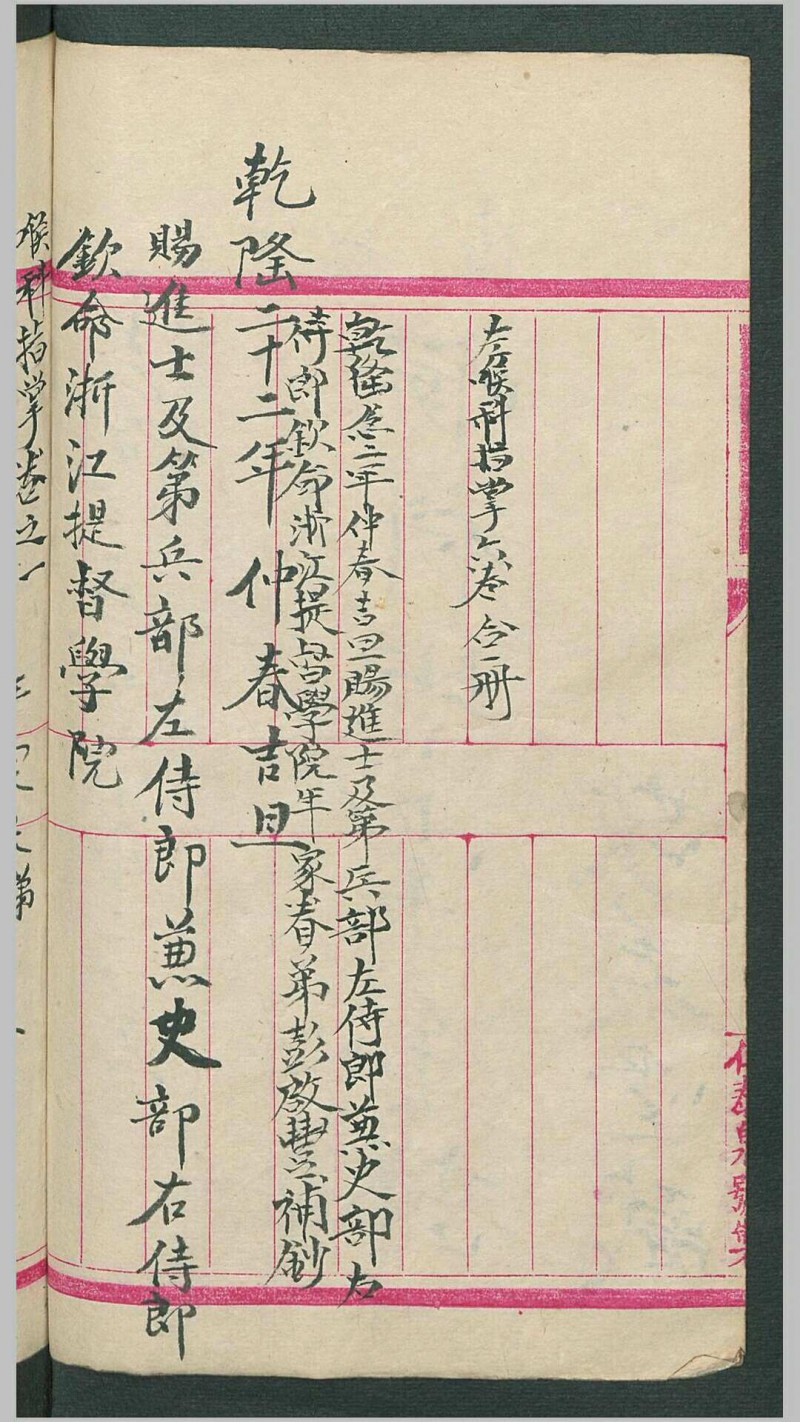 喉科指掌六卷合一册
乾隆念二年仲春吉旦賜進士及第兵部左侍郎兼史部右
侍郎欽命浙江提督學院年家眷弟彭啟豐補鈔
乾隆二十二年仲春吉旦
賜進士及第兵部左侍郎兼史部右侍郎
欽命浙江提督學院
喉科指掌卷之一